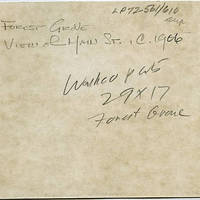 LP72-561/610
FOREST GROVE
VIEW of MAIN ST. , C. 1906
Washco
29 X 17
Forest Grove